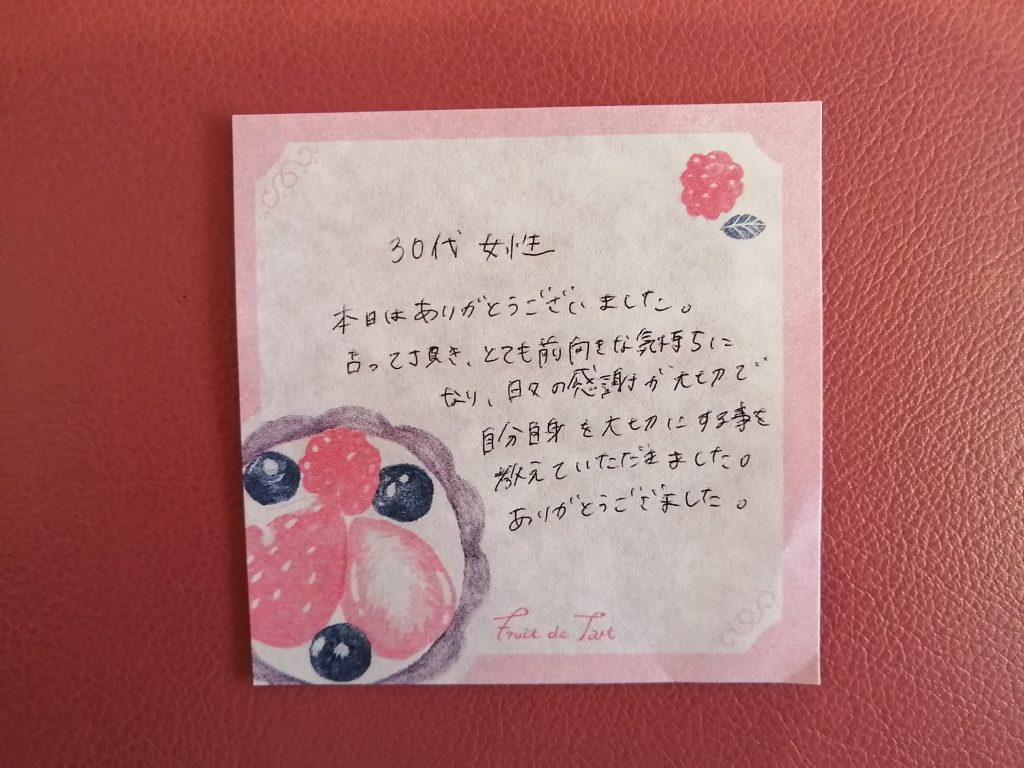 30代 女性
本日はありがとうございました。
占って頂き、とても前向きな気持ちに
なり、日々の感謝が大切で
自分自身を大切にする事を
教えていただきました。
ありがとうござました。
Fruit de Tart